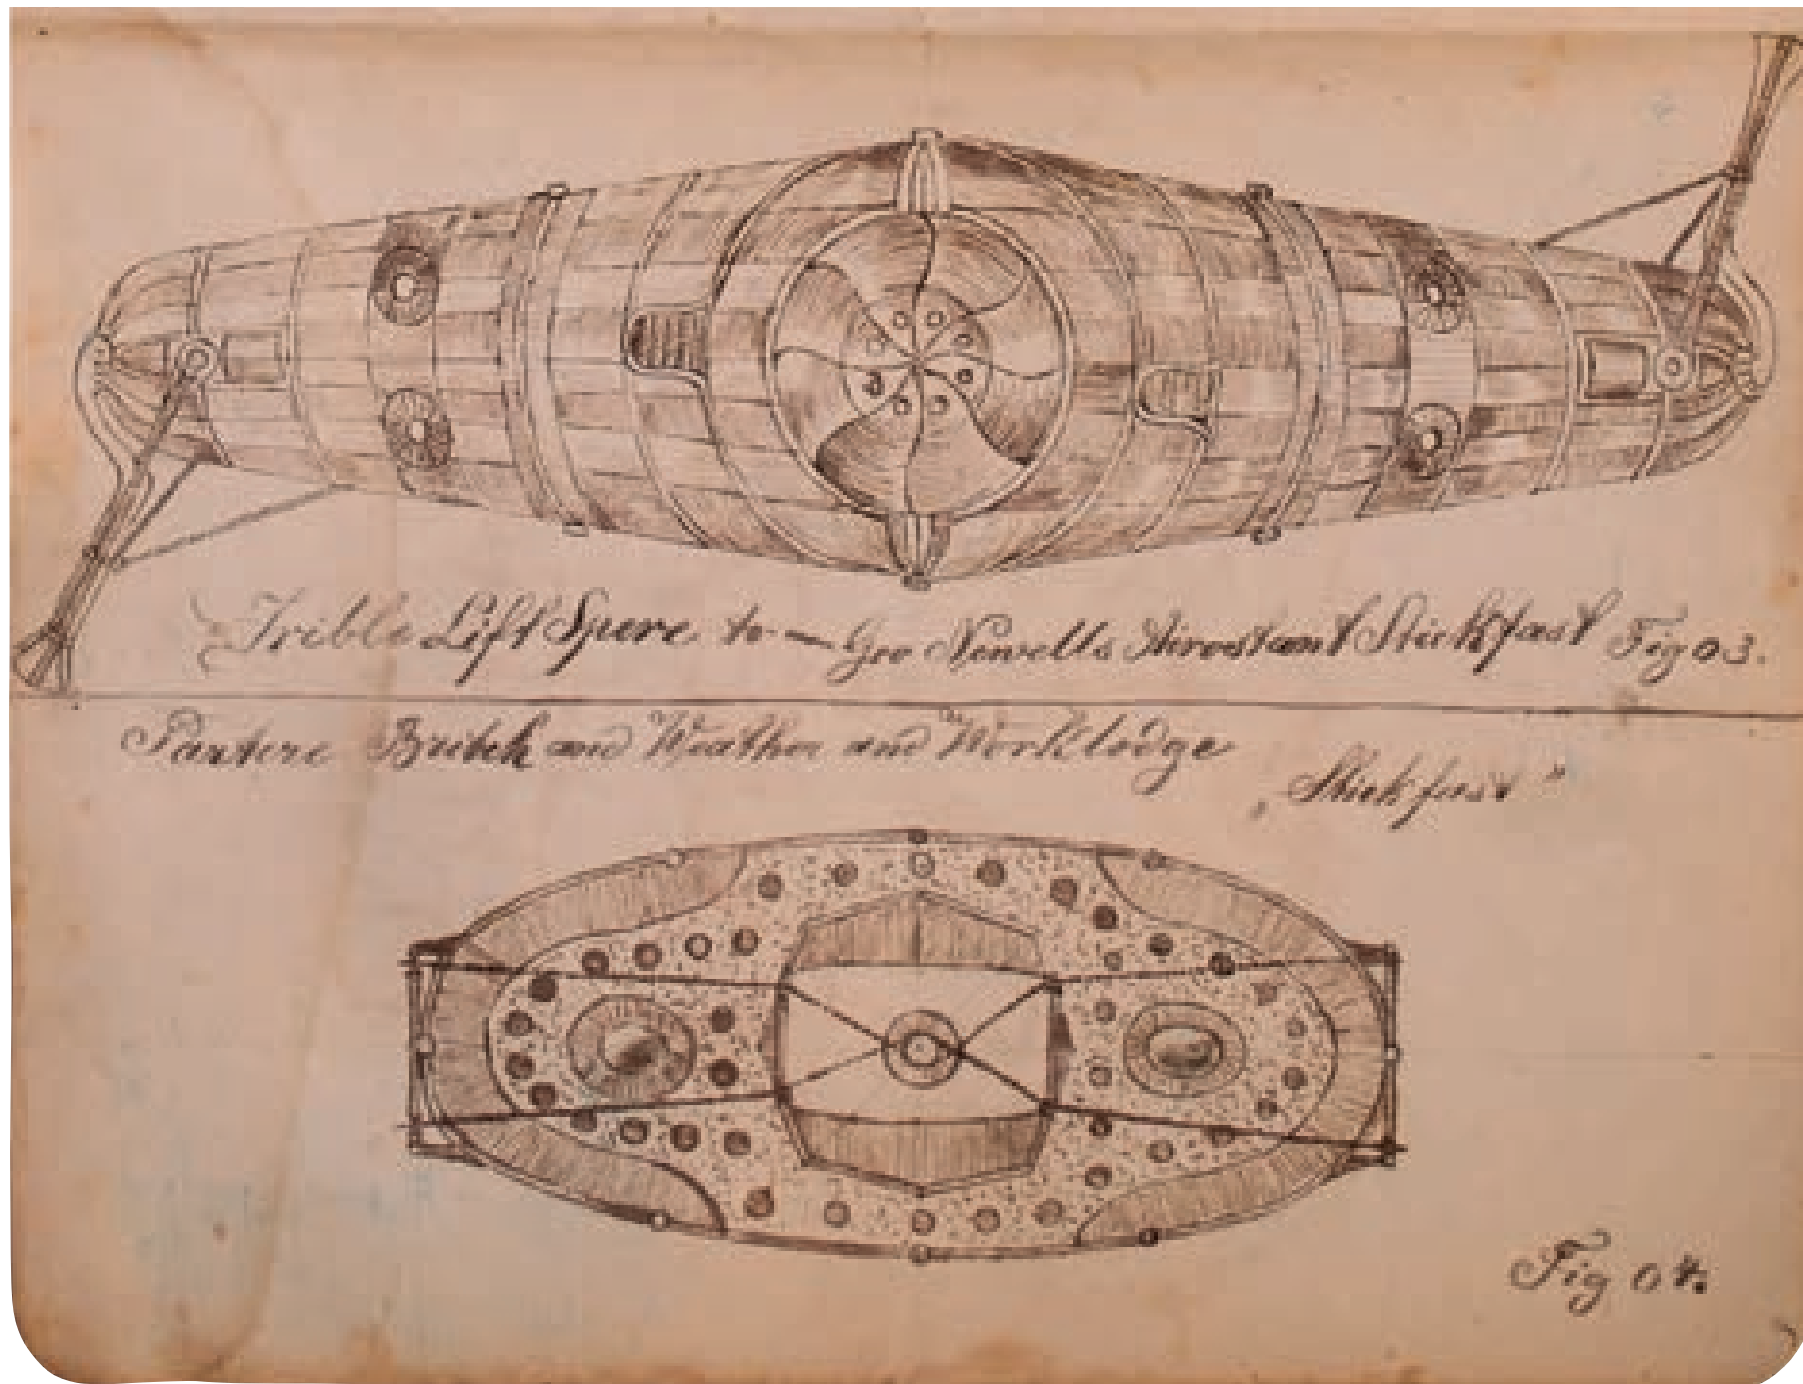 Trible Lift Spere to — Geo Newells Airostant Stickfast Fig 03.
Partere Britch and Weather and Worklodge
„Stickfast"
Fig 04.